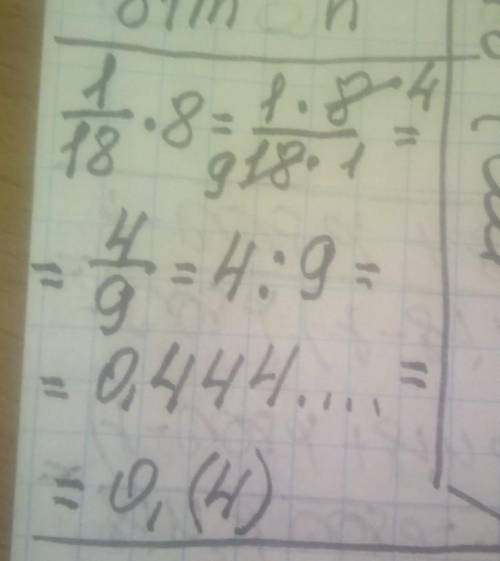 1/18 · 8 = 1 · 8 4 / 9 18 · 1 =
= 4/9 = 4 : 9 =
= 0,444.... =
= 0,(4)